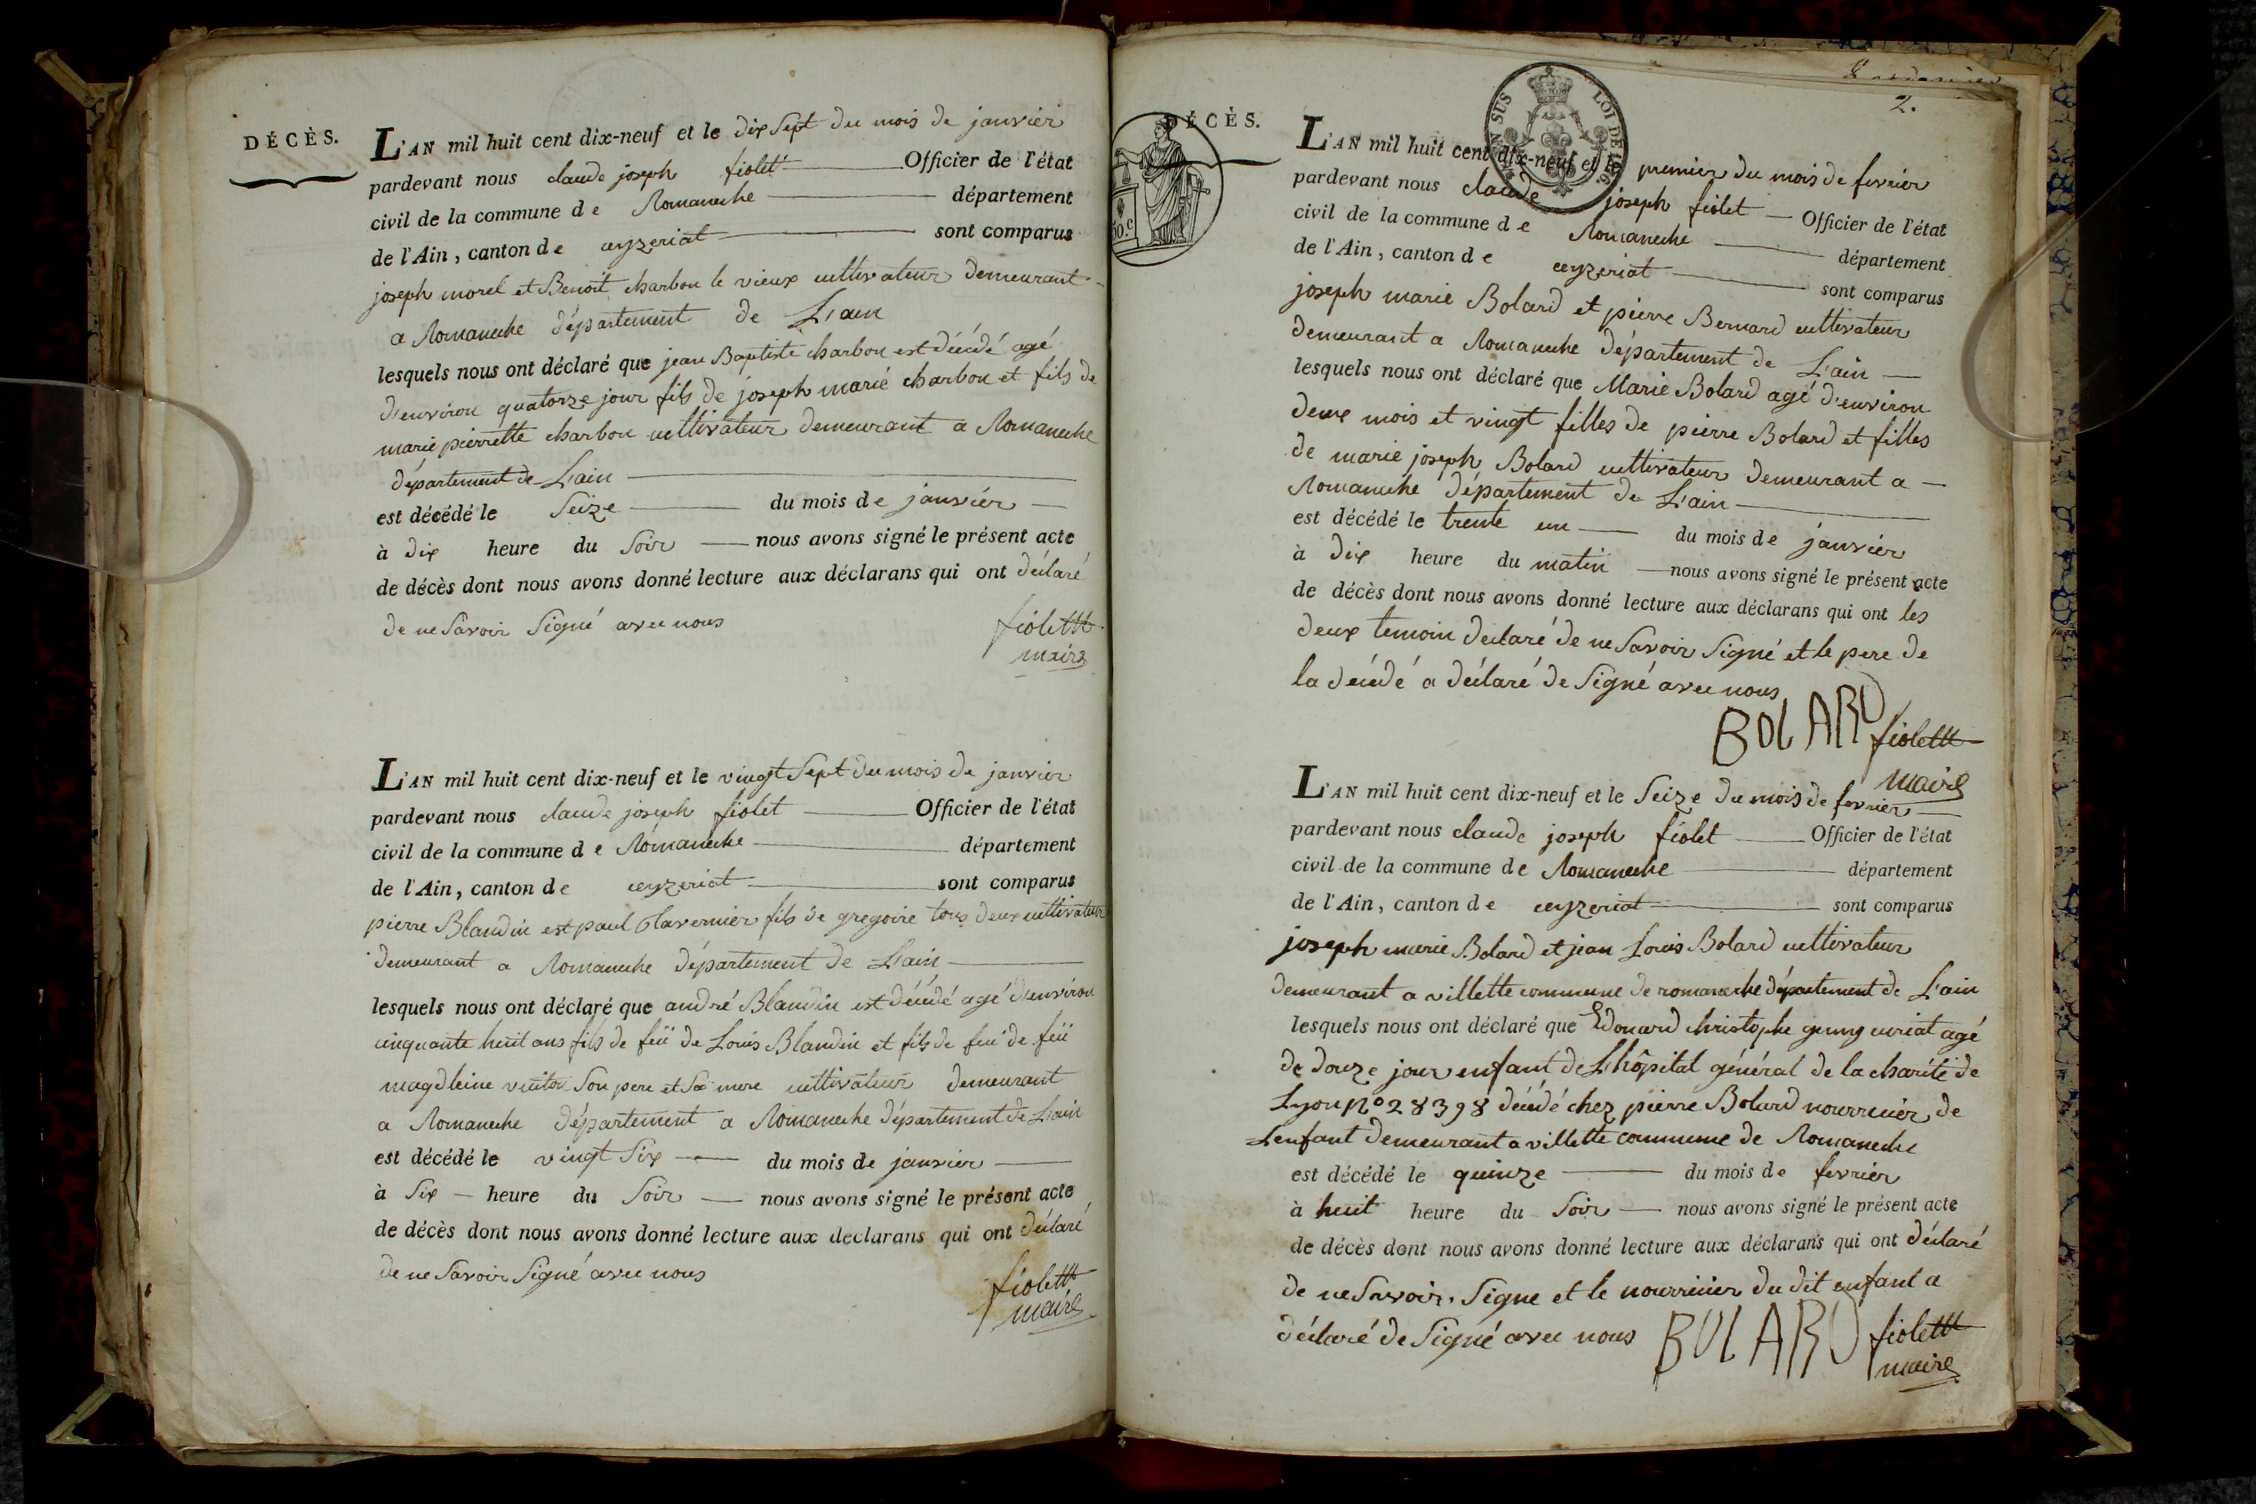 DÉCÈS.
L'AN mil huit cent dix-neuf et le dix Sept du mois de janvier
pardevant nous claude joseph fiolet Officier de l'état
civil de la commune de Romaneche département
de l'Ain, canton de ceyzeriat sont comparus
joseph morel et Benoit charbon le vieux cultivateur demeurant
a Romaneche département de L'ain
lesquels nous ont déclaré que jean Baptiste charbon est décédé agé
d'environ quatorze jour fils de joseph marie charbon et fils de
marie pierrette charbon cultivateur demeurant a Romaneche
département de L'ain
est décédé le Seize du mois de janvier
à dix heure du Soir nous avons signé le présent acte
de décès dont nous avons donné lecture aux déclarans qui ont déclaré
de ne Savoir Signé avec nous
fiolet
maire
L'AN mil huit cent dix-neuf et le vingt Sept du mois de janvier
pardevant nous claude joseph fiolet Officier de l'état
civil de la commune de Romaneche département
de l'Ain, canton de ceyzeriat sont comparus
pierre Blandin est paul Clavernier fils de gregoire tous deux cultivateur
demeurant a Romaneche département de L'ain
lesquels nous ont déclaré que andré Blandin est décédé agé d'environ
cinquante huit ans fils de feü de Louis Blandin et fils de feü de feü
magdleine Son pere et Sa mere cultivateur demeurant
a Romaneche département a Romaneche département de L'ain
est décédé le vingt Six du mois de janvier
à Six heure du Soir nous avons signé le présent acte
de décès dont nous avons donné lecture aux declarans qui ont déclaré
de ne Savoir Signé avec nous
fiolet
maire
2.
DÉCÈS.
SUS LOI DE 1816
L'AN mil huit cent dix-neuf et le premier du mois de fevrier
pardevant nous claude joseph fiolet Officier de l'état
civil de la commune de Romaneche département
de l'Ain, canton de ceyzeriat sont comparus
joseph marie Bolard et pierre Bernard cultivateur
demeurant a Romaneche département de L'ain
lesquels nous ont déclaré que Marie Bolard agé d'environ
deux mois et vingt filles de pierre Bolard et filles
de marie joseph Bolard cultivateur demeurant a
Romaneche département de L'ain
est décédé le trente un du mois de janvier
à dix heure du matin nous avons signé le présent acte
de décès dont nous avons donné lecture aux déclarans qui ont les
deux temoin declaré de ne Savoir Signé et le pere de
la décédé a déclaré de Signé avec nous
BOLARD fiolet
maire
L'AN mil huit cent dix-neuf et le Seize du mois de fevrier
pardevant nous claude joseph fiolet Officier de l'état
civil de la commune de Romaneche département
de l'Ain, canton de ceyzeriat sont comparus
joseph marie Bolard et jean Louis Bolard cultivateur
demeurant a villette commune de romaneche département de L'ain
lesquels nous ont déclaré que Edouard christophe agé
de douze jour enfant de L'hôpital général de la charité de
Lyon N° 28398 décédé chez pierre Bolard nourricier de
Lenfant demeurant a villette commune de Romaneche
est décédé le quinze du mois de fevrier
à huit heure du Soir nous avons signé le présent acte
de décès dont nous avons donné lecture aux déclarans qui ont déclaré
de ne Savoir Signe et le nourricier du dit enfant a
déclaré de Signé avec nous BOLARD fiolet
maire